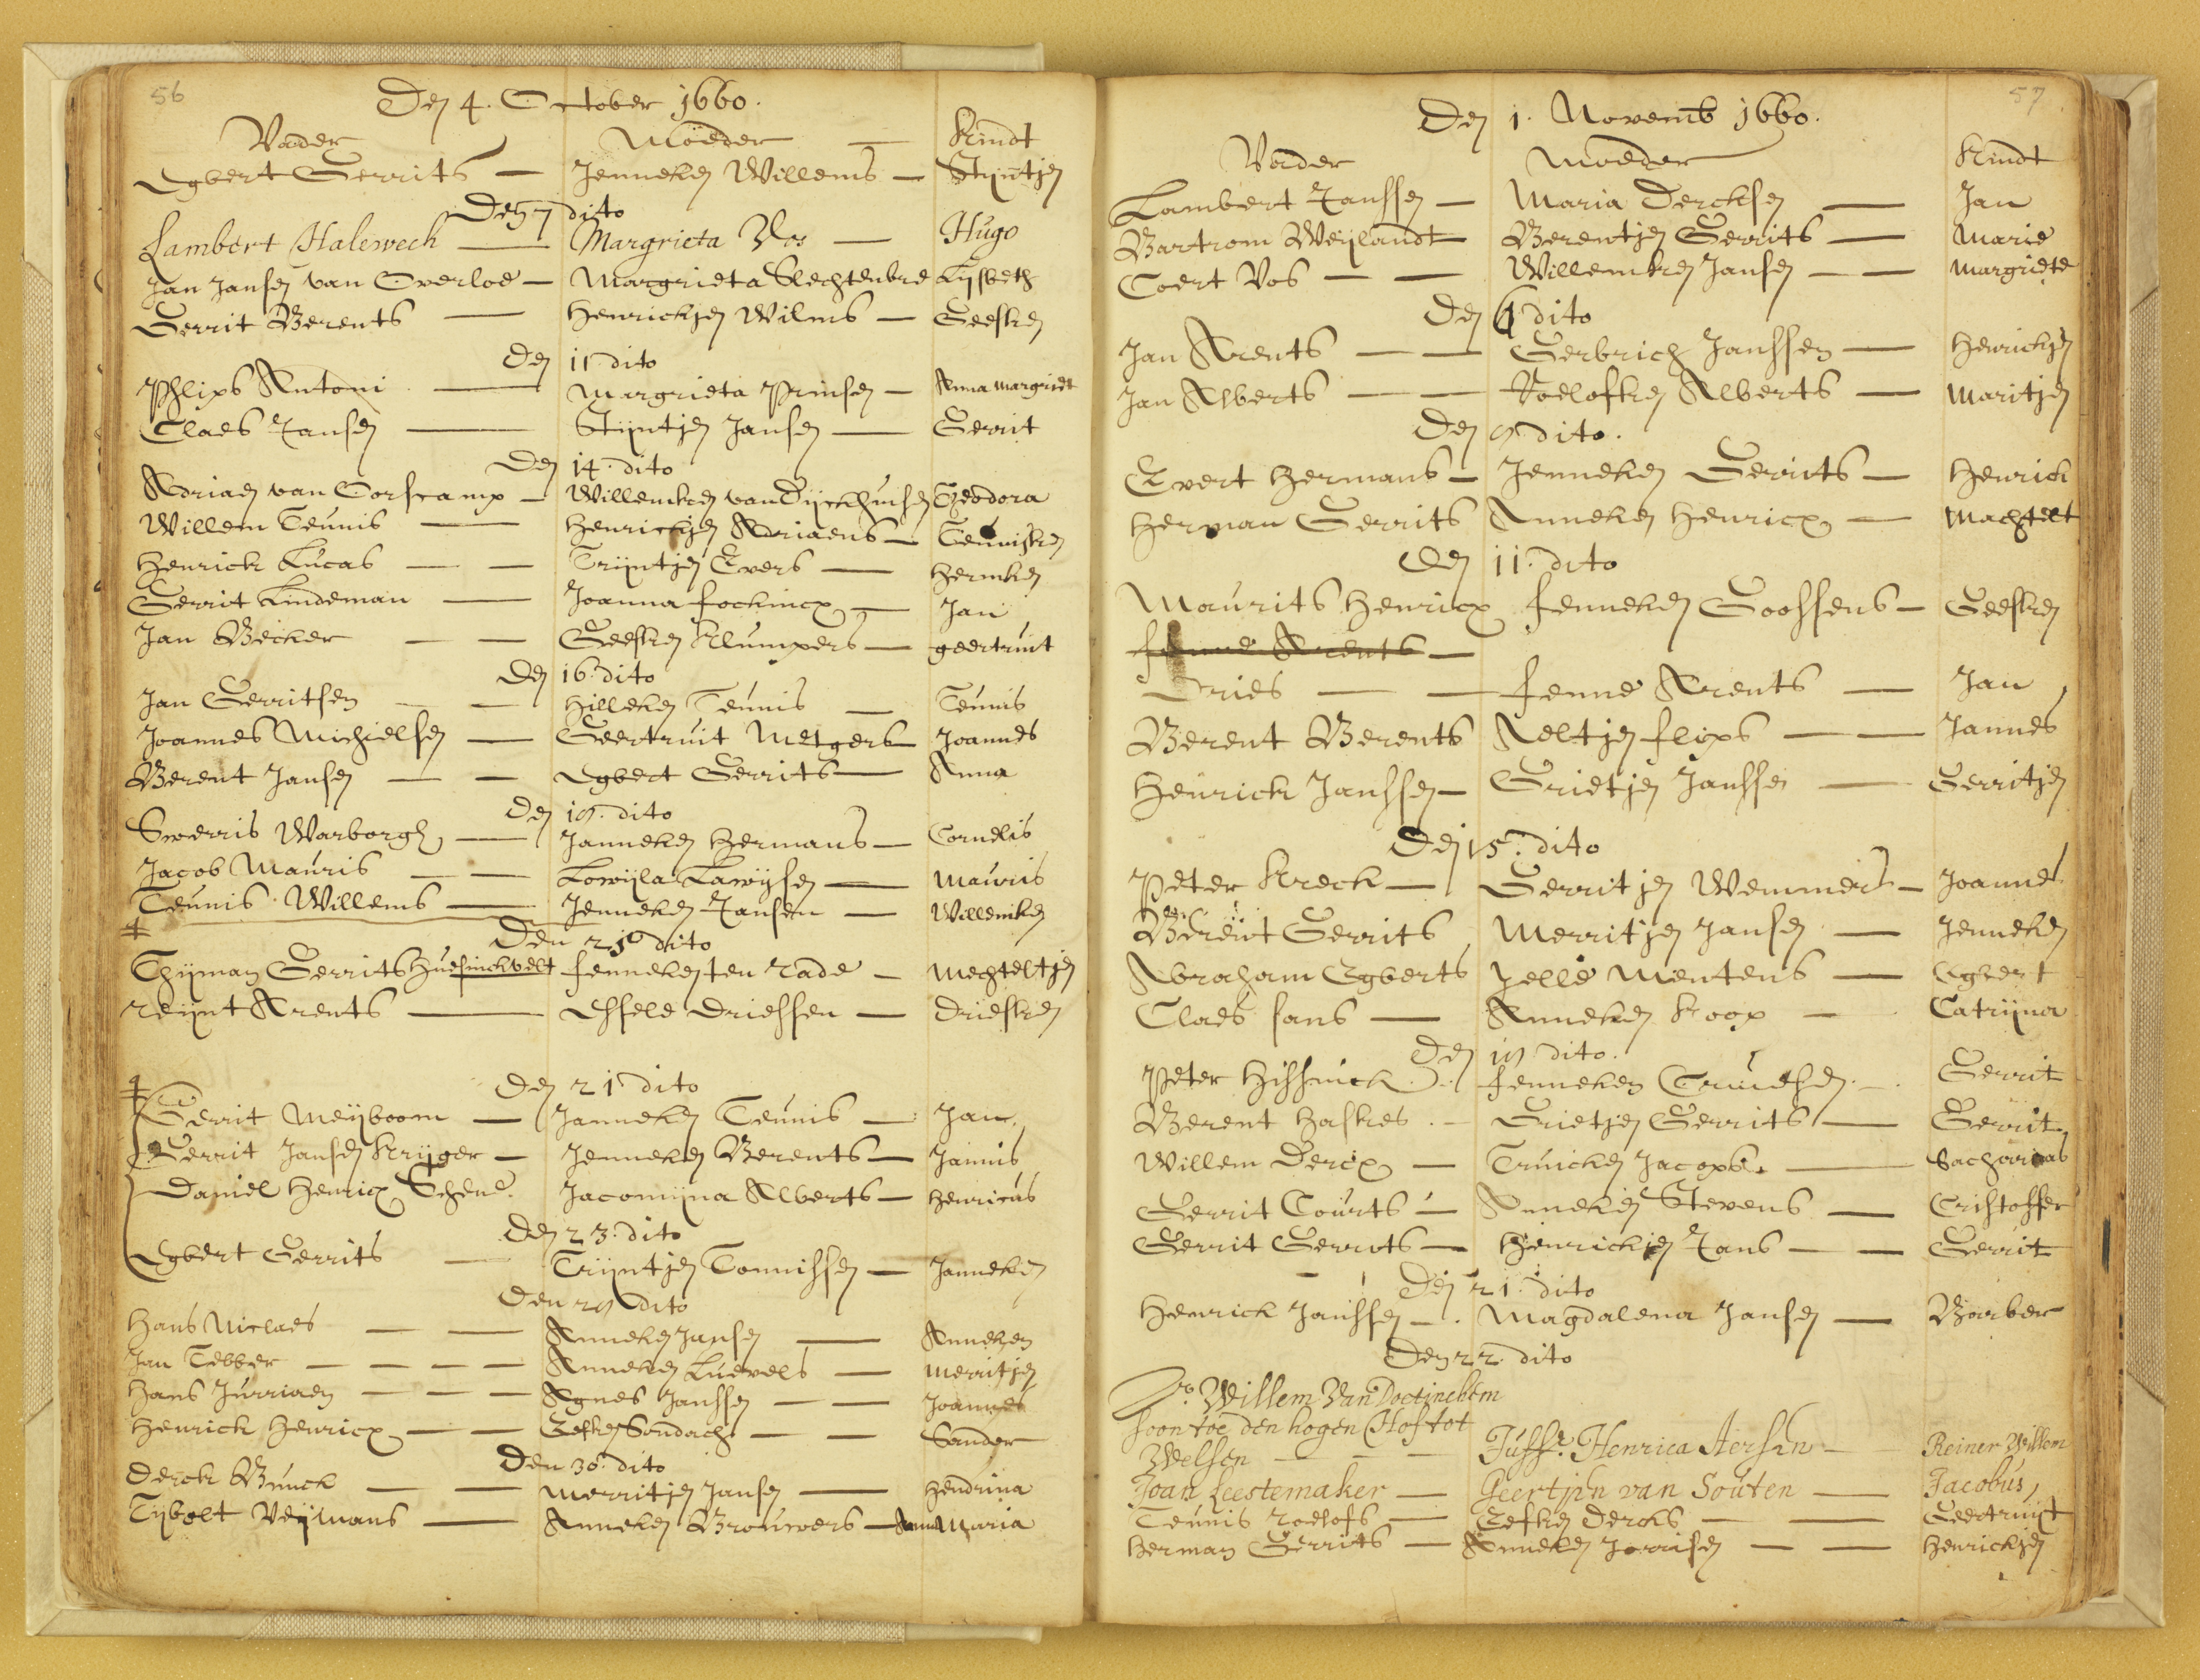 56
Den 4. October 1660.
Vader Moeder — Kindt
Egbert Gerrits — Jenneken Willems — Stijntjen
Den 7 dito
Lambert Halewech — Margrieta Vos — Hugo
Jan Jansen van Overloe — Margrieta Slechtenbre Lijsbeth
Gerrit Berents — Henrickjen Wilms — Geesken
Den 11 dito
Phlips Antoni — Margrieta Prinsen — Anna margriet
Claes Jansen — Stijntjen Jansen — Gerrit
Den 14. dito
Adriaen van Corscamp — Willemken van Dijckhuisen Theodora
Willem Teunis — Henrickjen Adriaens — Teunisken
Henrick Lucas — — Trijntjen Evers — Hermken
Gerrit Lindeman — Joanna fockincx — Jan
Jan Becker — — Geesken Klumpers — geertruit
Den 16. dito
Jan Gerritsen — — Hilleken Teunis — Teunis
Joannes Michielsen — Geertruit Metgers — Joannes
Berent Jansen — — Egbert Gerrits — Anna
Den 19. dito
Sweris Warborgh — Janneken Hermans — Cornelis
Jacob Mauris — — Lowijsa Lawijsen — Mauris
Teunis Willems — Jenneken Jansen — Willemken
Den 21 dito
Thijman Gerrits Huesinckvelt fenneken ten rade — Mechteltjen
reijnt Arents — Essele Driessen — Driesken
Den 21 dito
Gerrit Meijboom — Janneken Teunis — Jan
Gerrit Jansen Krijger — Jenneken Berents — Jannis
Daniel Henricx Schene. Jacomijna Alberts — Henricus
Den 23. dito
Egbert Gerrits — Trijntjen Tonnissen — Janneken
Den 29 dito
Hans Niclaes — — Anneken Jansen — Anneken
Jan Tebber — — — — Anneken Luevels — Merritjen
Hans Jurriaen — — — Agnes Janssen — — Joannes
Henrick Henricx — — Eefken Sondach — — Sander
Den 30. dito
Derck Bunck — — Merritjen Jansen — Hendrina
Tijbolt Veijmans — Anneken Brouwers — Anna Maria
57
Den 1. Novemb 1660.
Vader Moeder Kindt
Lambert Janssen — Maria Dercksen — Jan
Bartrom Weijlandt Berentjen Gerrits — Marie
Coert Vos — — Willemken Jansen — — Margriete
Den 4 dito
Jan Arents — — Gerbrich Janssen — Henrickjen
Jan Alberts — — Roelofken Alberts — Maritjen
Den 9. dito.
Evert Hermans — Jenneken Gerrits — Henrick
Herman Gerrits Anneken Henricx — Machtelt
Den 11. dito
Maurits Henricx fenneken Goossens — Geesken
fenne Arents —
Dries — — fenne Arents — Jan
Berent Berents Aeltjen flips — — Jannes
Henrick Janssen — Grietjen Janssen — Gerritjen
Den 15. dito
Peter Kreck — Gerritjen Wemmers — Joannes
Berent Gerrits Merritjen Jansen — Jenneken
Abraham Egberts Jelle Mentens — Egbert
Claes Jans — Anneken Koop — Catrijna
Den 19 dito.
Peter Hissinck. fenneken — Gerrit
Berent Haskes. — Grietjen Gerrits — Gerrit
Willem Dercx — Truicken Jacops. — Sacharias
Gerrit Courts — Anneken Stevens — Cristoffer
Gerrit Gerrits — Henrickjen Jans — — Gerrit
Den 21. dito
Henrick Janssen — Magdalena Jansen — Barber
Den 22. dito
Jr. Willem Van Doetinchem
soon toe den hogen Hof tot
Welsen — — — Juffr. Henrica Aersen — Reiner Willem
Joan Leestemaker — Geertjen van Souten — Jacobus
Teunis roelofs — Eefken Dercks — — Geertruijt
Herman Gerrits — Anneken Jorrisen — — Henrickjen